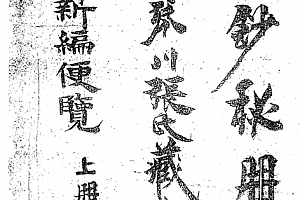 鈔秘冊
琴川張氏藏
新編便覽 上冊